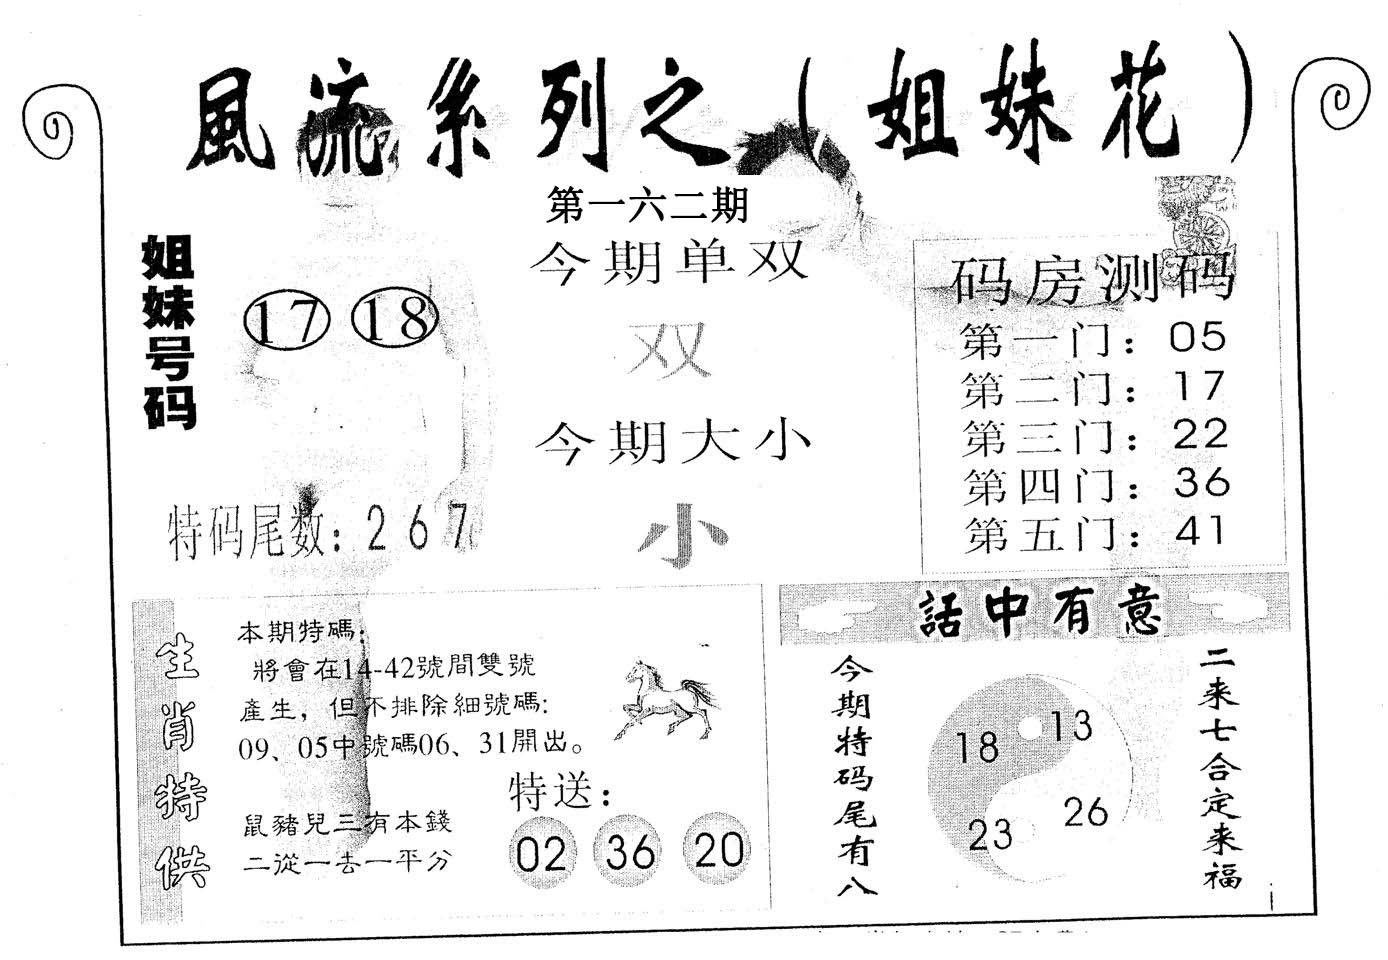 風流系列之（姐妹花）
第一六二期
姐妹号码
17 18
特码尾数：2 6 7
今期单双
双
今期大小
小
码房测码
第一门：05
第二门：17
第三门：22
第四门：36
第五门：41
生肖特供
本期特碼：
將會在14-42號間雙號
產生，但不排除細號碼:
09、05中號碼06、31開出。
鼠豬兒三有本錢
二從一去一平分
特送：
02 36 20
話中有意
今期特码尾有八
18 13
23 26
二来七合定来福